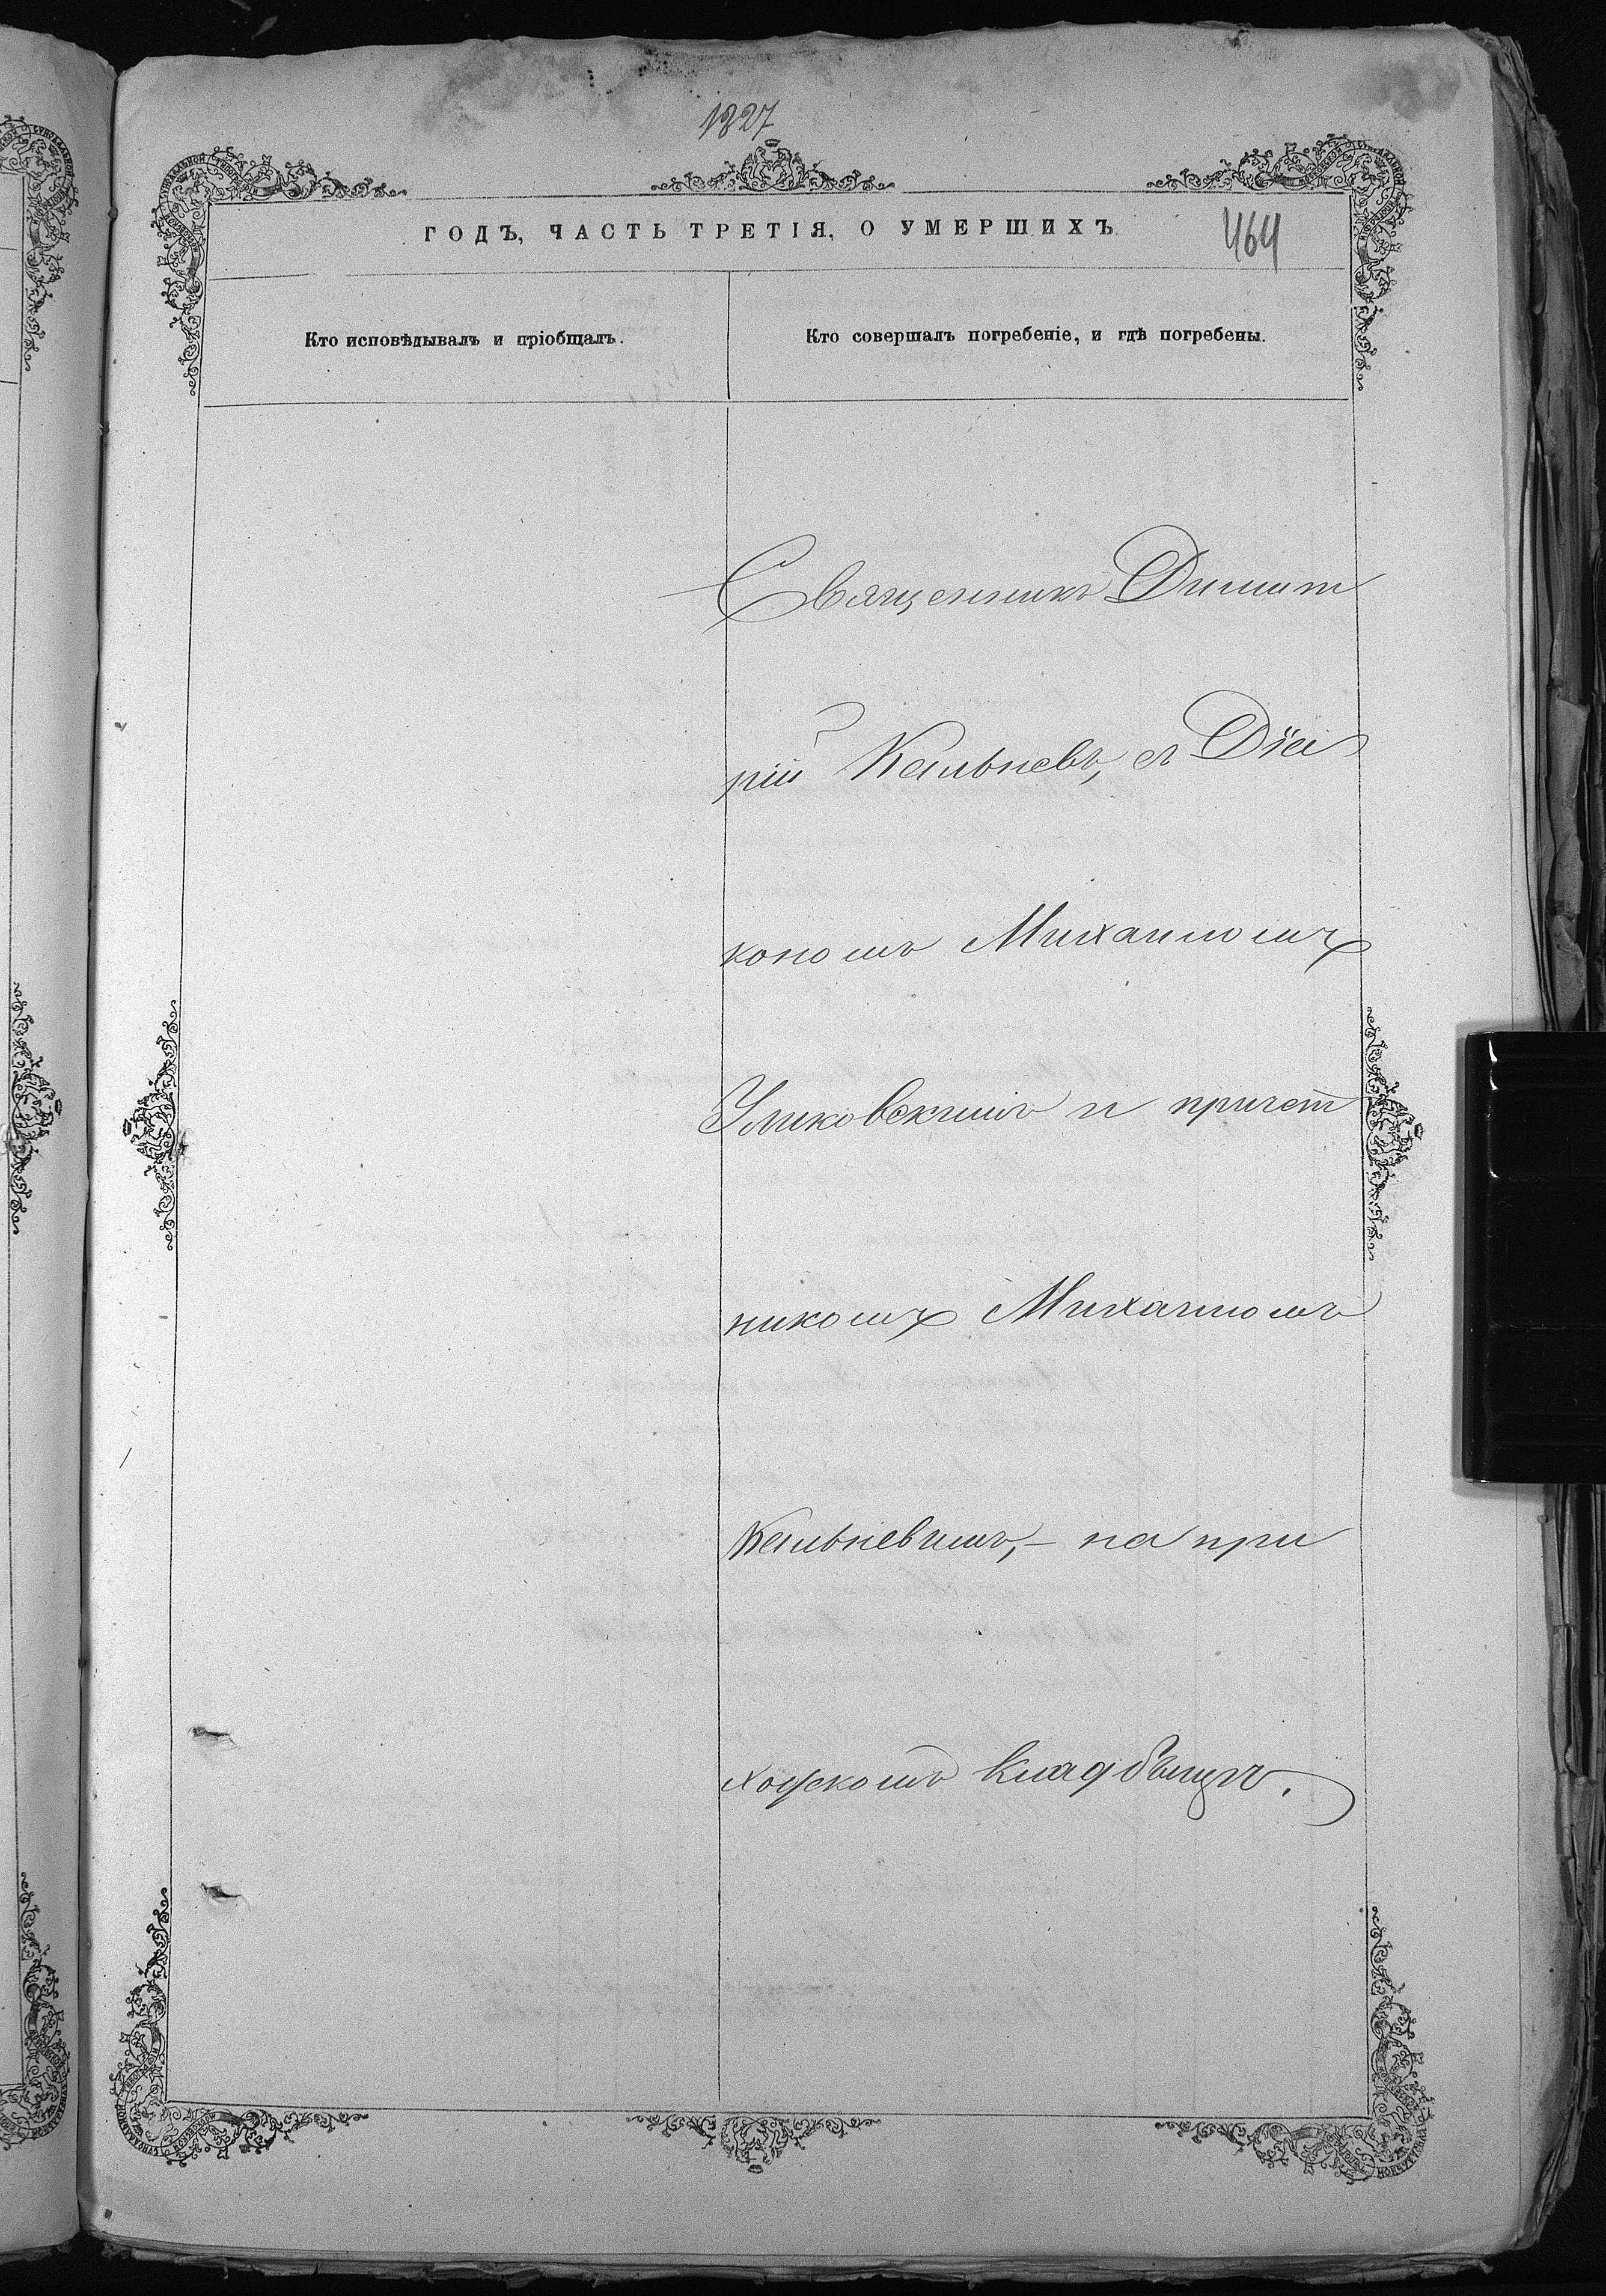 1827
ГОДЪ, ЧАСТЬ ТРЕТІЯ, О УМЕРШИХЪ
464
Кто исповѣдывалъ и пріобщалъ.
Кто совершалъ погребеніе, и гдѣ погребены.
Священникъ Димит
рій Кальневъ, съ Діа
кономъ Михаиломъ
Уликовскимъ и причет
никомъ Михаиломъ
Кальневымъ, — на при
ходскомъ кладбищѣ.